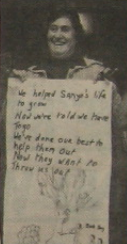 We helped Sanya's life
to grow
Now we're told we have
to go
We've done our best to
help them out
Now they want to
throw us out